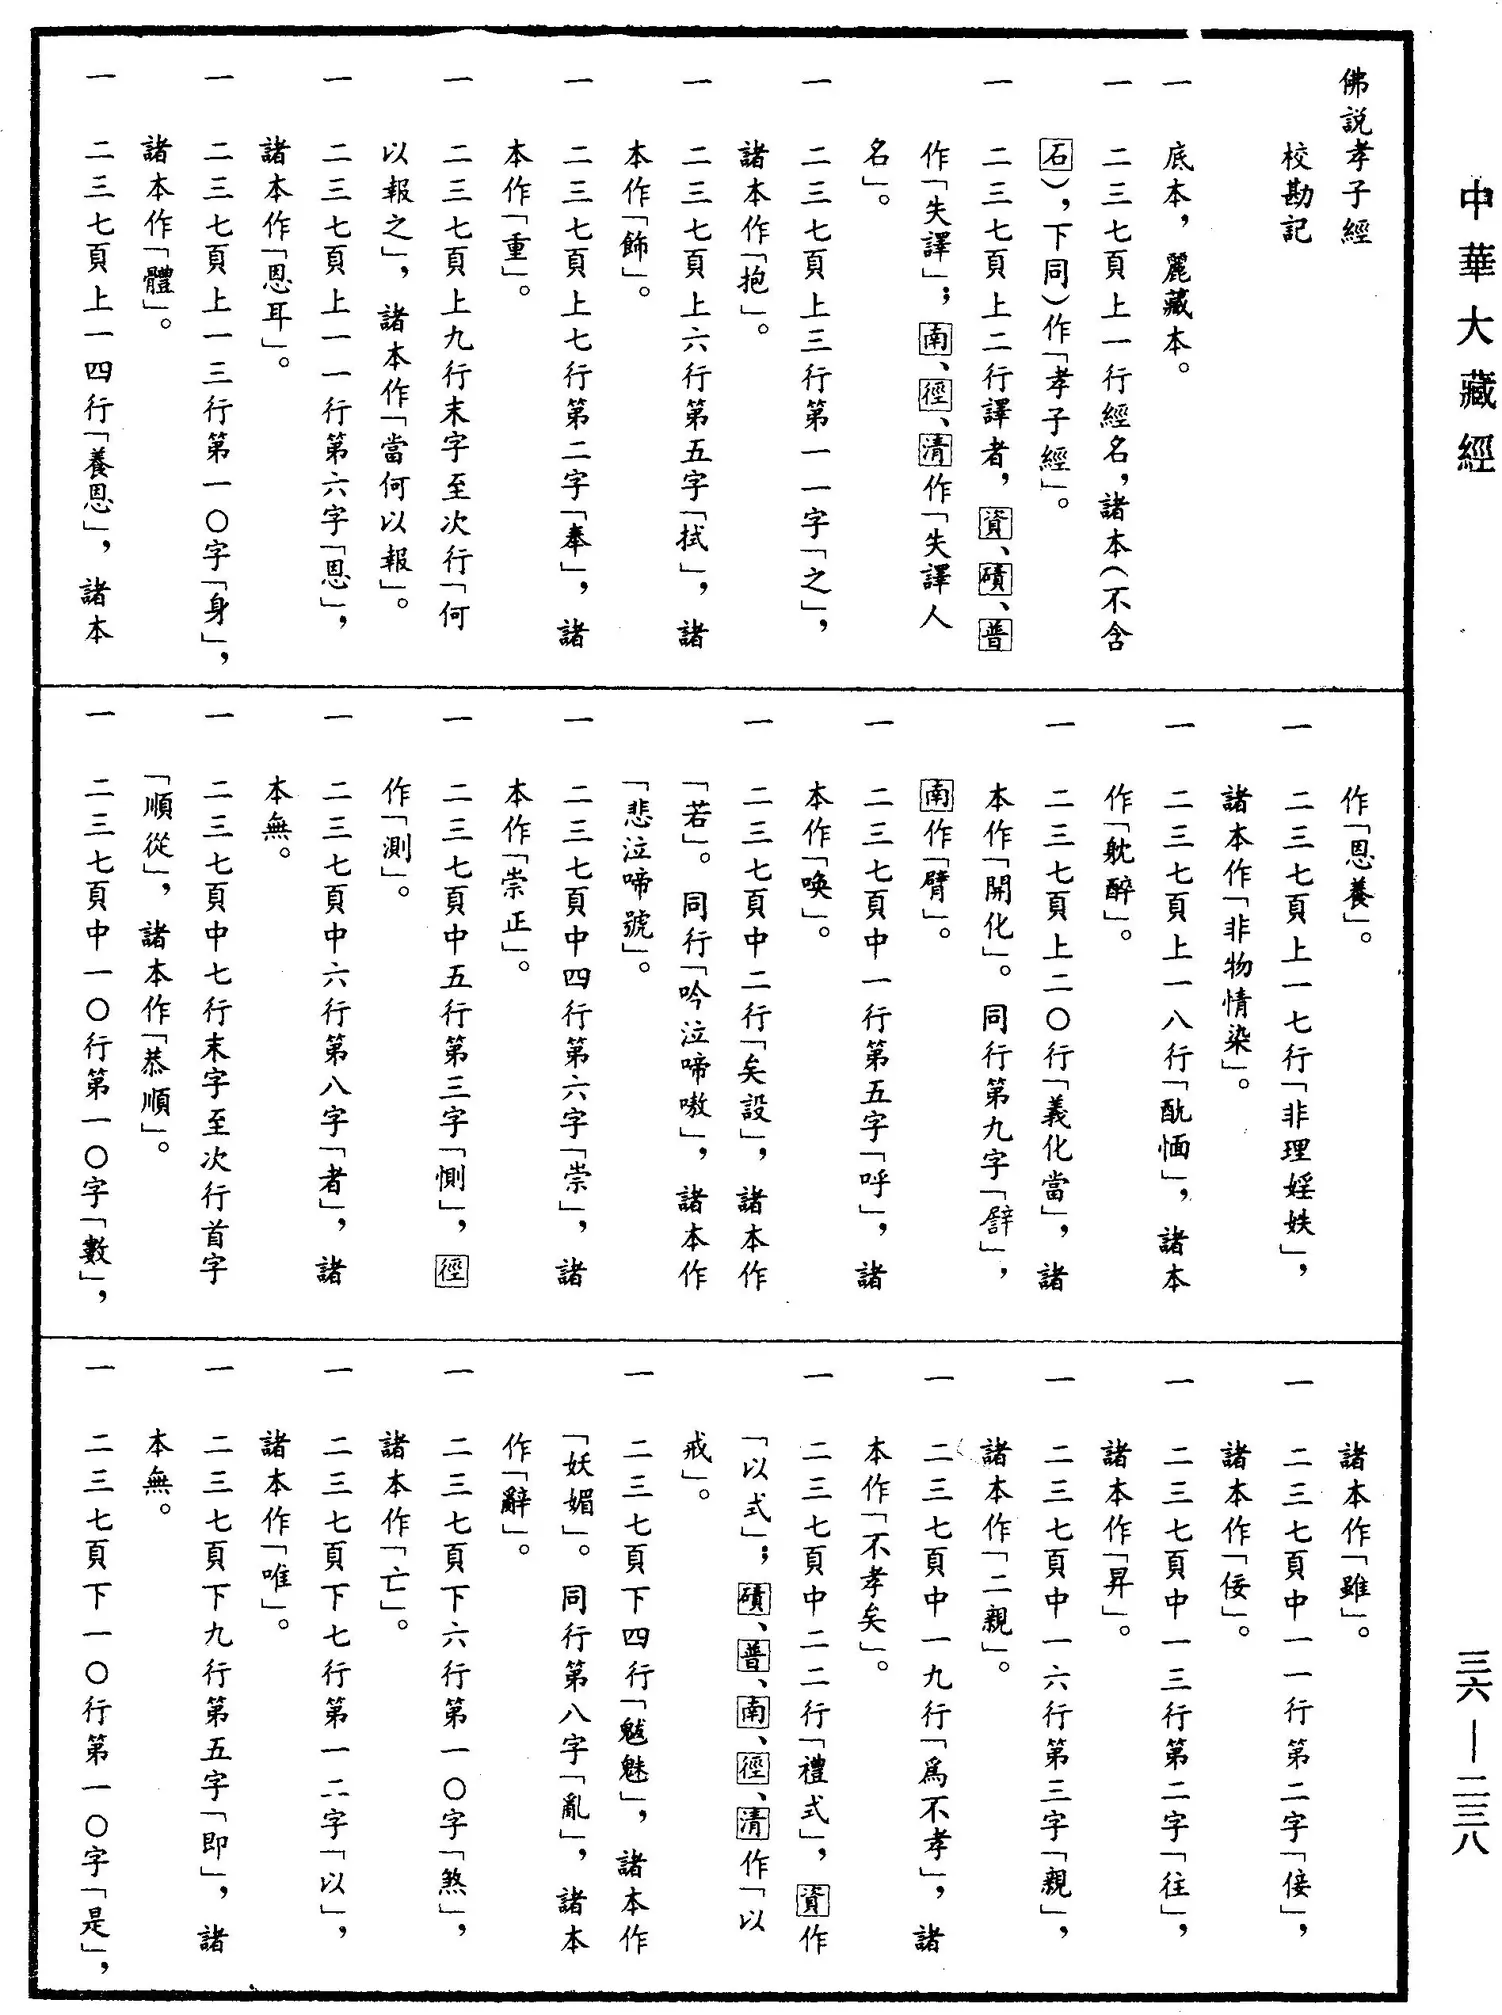 中華大藏經
三六—二三八
佛説孝子經
校勘記
一 底本，麗藏本。
一 二三七頁上一行經名，諸本（不含
石），下同）作「孝子經」。
一 二三七頁上二行譯者，資、磧、普
作「失譯」；南、徑、清作「失譯人
名」。
一 二三七頁上三行第一一字「之」，
諸本作「抱」。
一 二三七頁上六行第五字「拭」，諸
本作「飾」。
一 二三七頁上七行第二字「奉」，諸
本作「重」。
一 二三七頁上九行末字至次行「何
以報之」，諸本作「當何以報」。
一 二三七頁上一一行第六字「恩」，
諸本作「恩耳」。
一 二三七頁上一三行第一〇字「身」，
諸本作「體」。
一 二三七頁上一四行「養恩」，諸本
作「恩養」。
一 二三七頁上一七行「非理婬妷」，
諸本作「非物情染」。
一 二三七頁上一八行「酖愐」，諸本
作「躭醉」。
一 二三七頁上二〇行「義化當」，諸
本作「開化」。同行第九字「礔」，
南作「臂」。
一 二三七頁中一行第五字「呼」，諸
本作「喚」。
一 二三七頁中二行「矣設」，諸本作
「若」。同行「吟泣啼嗷」，諸本作
「悲泣啼號」。
一 二三七頁中四行第六字「崇」，諸
本作「崇正」。
一 二三七頁中五行第三字「惻」，徑
作「測」。
一 二三七頁中六行第八字「者」，諸
本無。
一 二三七頁中七行末字至次行首字
「順從」，諸本作「恭順」。
一 二三七頁中一〇行第一〇字「數」，
諸本作「雖」。
一 二三七頁中一一行第二字「倿」，
諸本作「佞」。
一 二三七頁中一三行第二字「往」，
諸本作「昇」。
一 二三七頁中一六行第三字「親」，
諸本作「二親」。
一 二三七頁中一九行「爲不孝」，諸
本作「不孝矣」。
一 二三七頁中二二行「禮式」，資作
「以式」；磧、普、南、徑、清作「以
戒」。
一 二三七頁下四行「魃魅」，諸本作
「妖媚」。同行第八字「亂」，諸本
作「辭」。
一 二三七頁下六行第一〇字「煞」，
諸本作「亡」。
一 二三七頁下七行第一二字「以」，
諸本作「唯」。
一 二三七頁下九行第五字「即」，諸
本無。
一 二三七頁下一〇行第一〇字「是」，